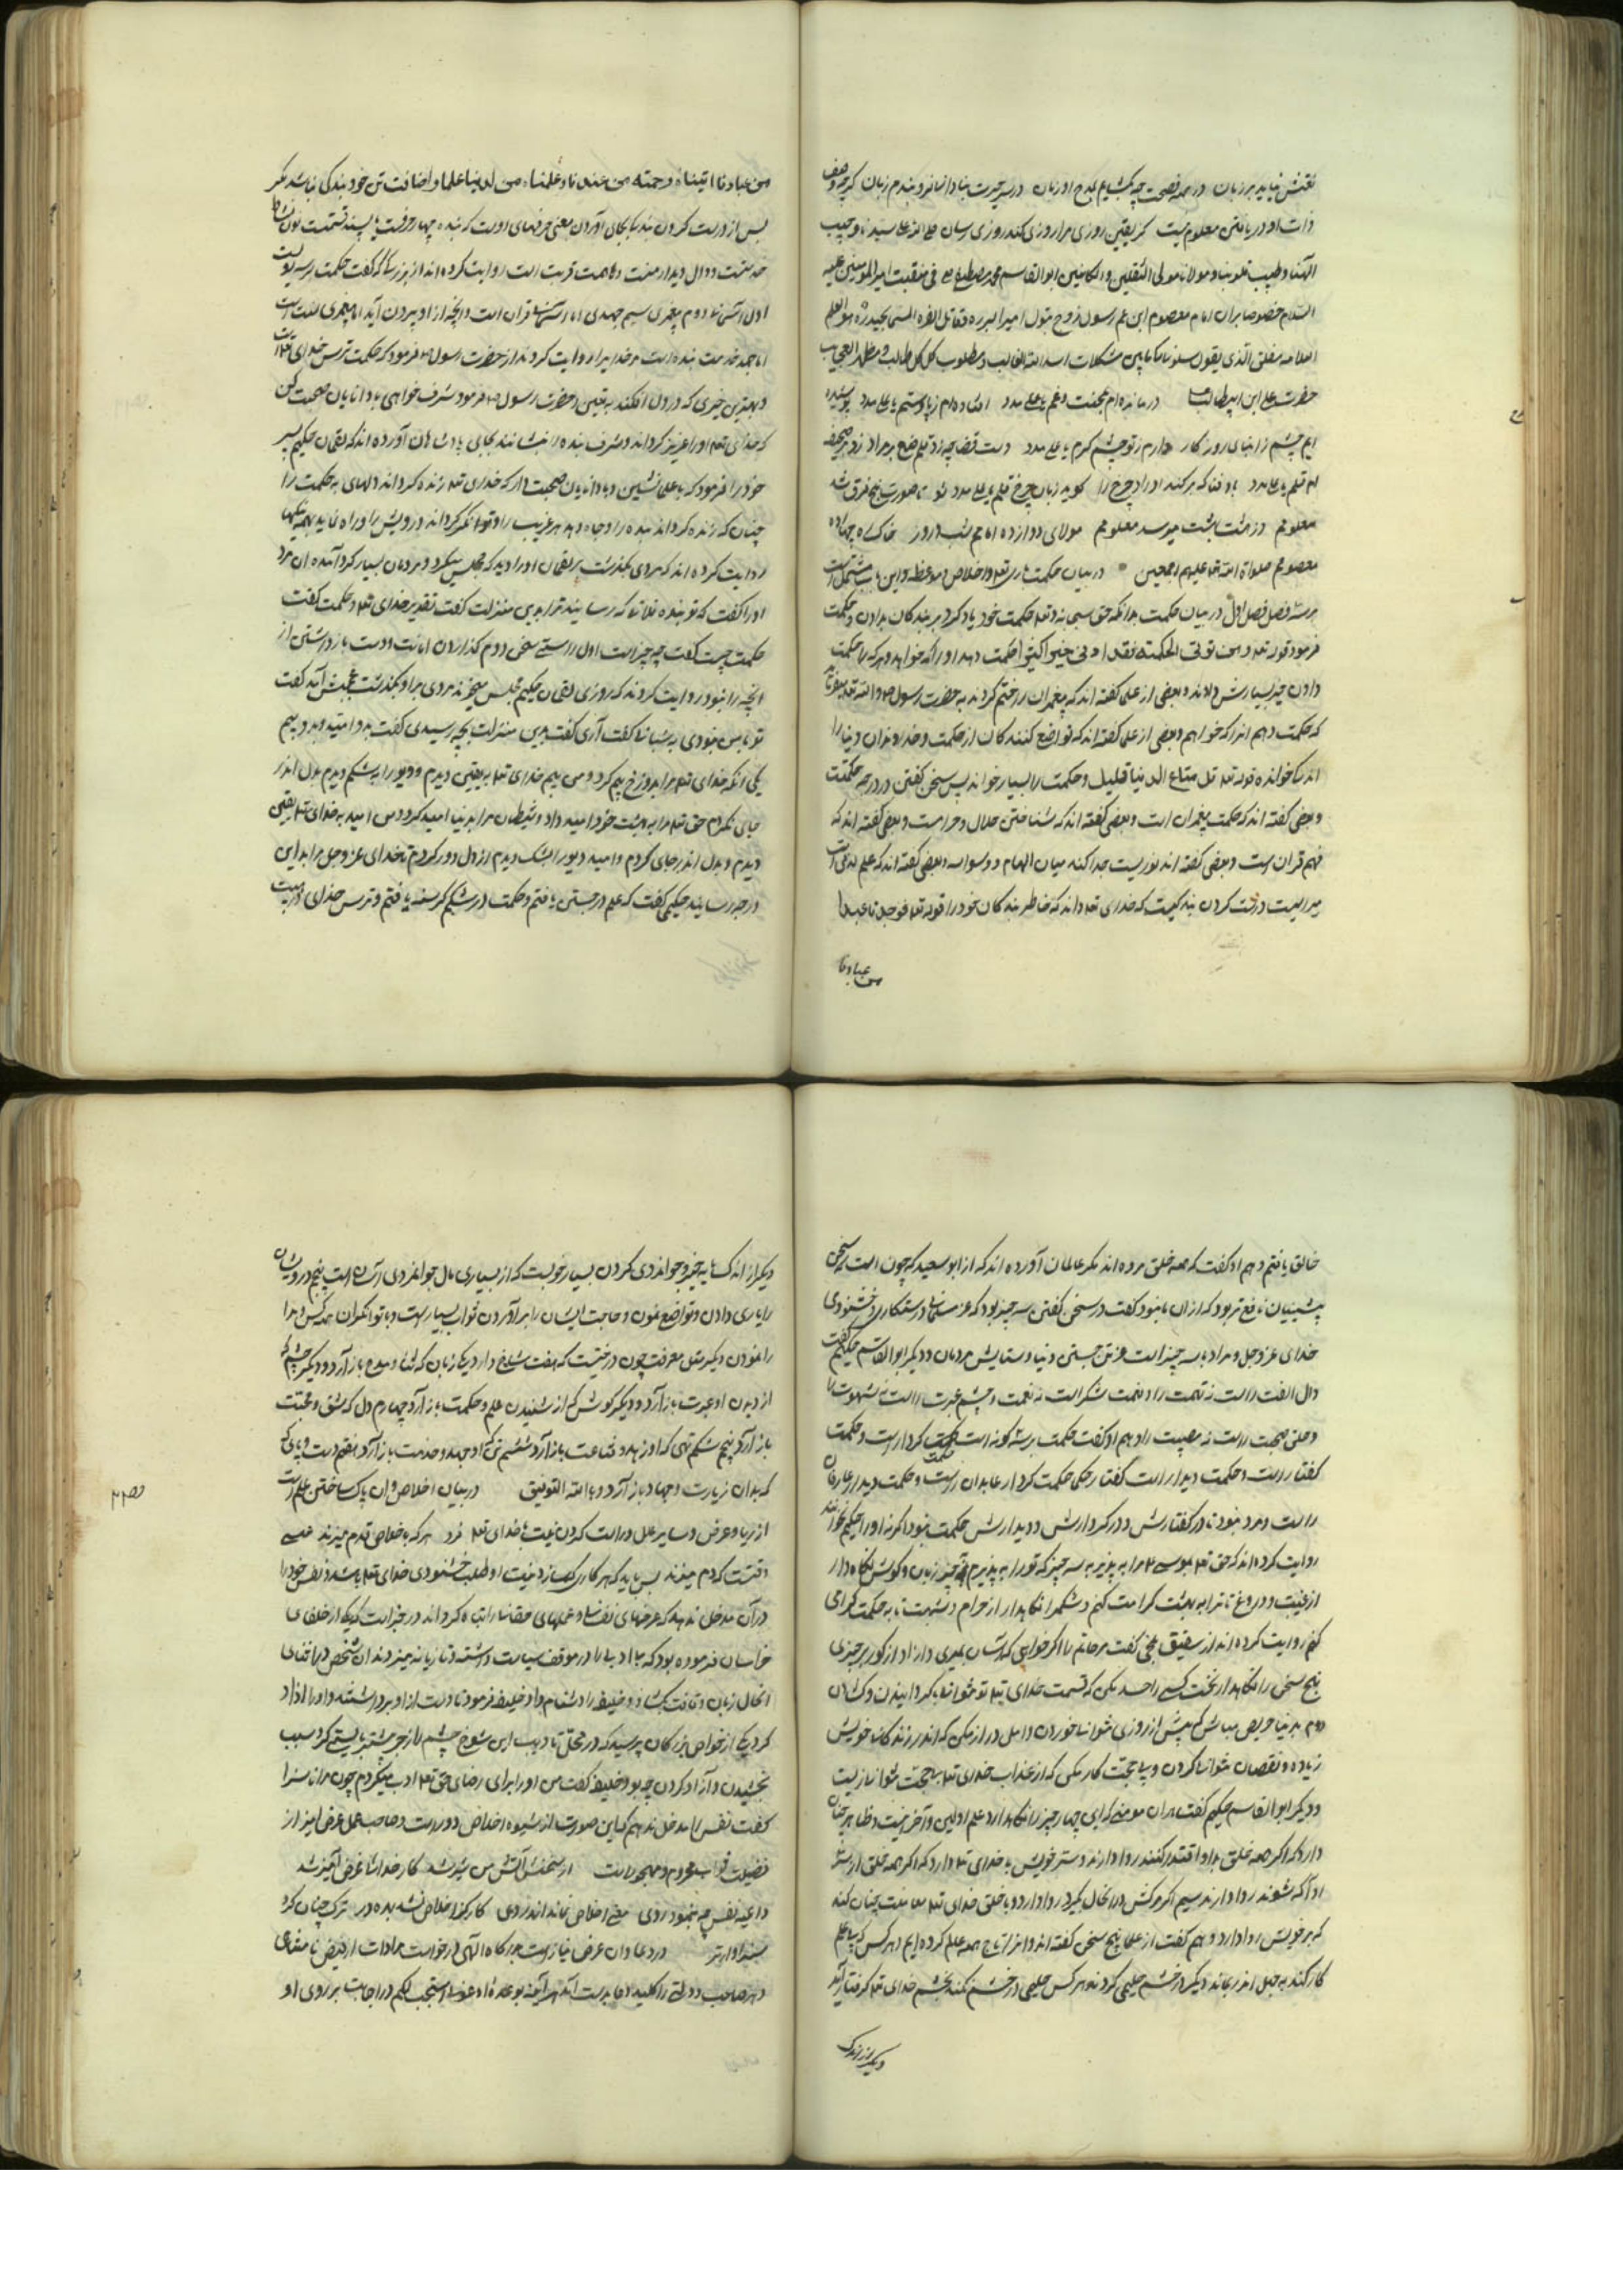 نقتش نیاید بر زبان در همه فصحت چه بکشایم بمدح او زبان
ذات او دریافتن معلوم نیست کر یقین روزی مرا روزی کند روزی رسان
الهنا و طبیب قلوبنا و مولانا مولی الثقلین و الکاینین ابو القاسم محمد مصطفی فی منقبت امیر المومنین علیه
السلام خصوصا بر ان امام معصوم ابن عم رسول زوج بتول امیر البرره و قاتل الفره
مشکلات اسد الله الغالب و مطلوب کل طالب و مظهر العجایب
حضرت علی ابن ابیطالب درمانده‌ام بمحنت و غم یا علی مدد افتاده‌ام ز پا دستم یا علی مدد پوشیده
ایم چشم ز ابنای روزکار دارم ز تو چشم کرم یا علی مدد دست قضا چه زد قلم
معلوم در هشت بهشت میرسد معلوم مولای دوازده امامم شب و روز خاک ره چهارده
معصوم صلواة الله علیهم اجمعین در بیان حکمت و اخلاص و موعظه و این باب مشتمل است
بر سه فصل فصل اول در بیان حکمت بدانکه حق سبحانه و تعالی حکمت خود یاد کرد بر بندکان بدادن حکمت
فرمود قوله تعه و من یؤتی الحکمة فقد اوتی خیرا کثیرا حکمت دهد او را که خواهد و هر که را حکمت
دادن خیر بسیارش دادند و بعضی از علما کفته‌اند که پیغمبران را ختم کردند به حضرت رسول
که حکمت دهم انرا که خواهم و بعضی از علما کفته‌اند که تواضع کنند کان از حکمت و خداوندان دنیا را
اندک خوانده قوله تعه قل متاع الدنیا قلیل و حکمت را بسیار خواند پس سخن کفتن در درجه حکمتت
و بعضی کفته‌اند که حکمت پیغمبران است و بعضی کفته‌اند که شناختن حلال و حرامست و بعضی کفته‌اند که
فهم قران است و بعضی کفته‌اند نوریست جدا کننده میان الهام و وسواسه و بعضی کفته‌اند که علم لدنی است
میراثیست درست کردن بندکیست که خدای تعه داند که خاطر بندکان خود را قوله تعه فوجدنا عبدا
من عبادنا
من عبادنا اتیناه رحمته من عندنا و علمناه من لدنا علما و اضافت تن خود بندکی نباشد مکر
پس از درست کردن بندکی بجای آوردن معنی حرفهای اوست که بنده چهار حرفست
خدمتست و دال دیدار منت و ها همت قربت است روایت کرده‌اند از بزرکی که کفت حکمت بر سه نوعست
اول آسمانی دوم پیغمبری سیم جهدی اما آسمانی قران است و انچه از او بیرون آید اما پیغمبری سنت است
اما جهد خدمت بنده است مر خدا را و روایت کردند از حضرت رسول که فرمود که حکمت ترس خدای تعه است
و بهترین چیزی که در دل افکنند یقین و حضرت رسول فرمود شرف خواهی با دانایان صحبت کن
که خدای تعه او را عزیز کرداند و شرف بنده را بنشانند بجای پادشاهان آورده‌اند که لقمان حکیم پسر
خود را فرمود که با علما نشین و با دانایان صحبت دار که خدای تعه زنده کرداند دلهای به حکمت را
چنان که زنده کرداند بنده را و جاه دهد هر غریب را و توانکر کرداند درویش را و راه نماید بهمه نیکیها
روایت کرده‌اند که مردی بکذشت بر لقمان او را دید که مجلس میکرد و مردمان بسیار کرد آمده ان مرد
او را کفت که تو بنده فلان که رسانید ترا بدین منزلت کفت تقدیر خدای تعه و حکمت کفت
حکمت چیست کفت چه چیز است اول راستی سخن دوم کذاردن امانت و دست بازداشتن از
انچه را نبود روایت کردند که روزی لقمان حکیم مجلس میکرد مردی بر او بکذشت عجبش آمد کفت
تو با من نبودی به شبانی کفت آری کفت بدین منزلت بچه رسیدی کفت بدو امید و بدو بیم
یکی انکه خدای تعه مرا بدوزخ بیم کرد و من بیم خدای تعه به یقین دیدم و دیو را بشک دیدم بدل اندر
جای نکردم حق تعه مرا به بهشت خود امید داد و شیطان مرا بدنیا امید کرد و من امید به خدای تعه یقین
دیدم و بدل اندر جای کردم و امید دیو را بشک دیدم از دل دور کردم تا خدای عز و جل مرا بدین
درجه رسانید حکیمی کفت که علم در جستن یافتم و حکمت در شکم کرسنه یافتم و ترس خدای
خالق یافتم و هم او کفت که همه خلق مرده‌اند مکر عالمان آورده‌اند که از ابو سعید که چون است که سخن
پیشینیان نافع‌تر بود که از ان ما نبود کفت در سخن کفتن سه چیز بود که عز مسلمانی و رستکاری و خشنودی
خدای عز و جل و مراد ما سه چیز است عز تن جستن دنیا و ستایش مردمان و دیکر ابو القاسم حکیم کفت
دال الفت راست نه تهمت را و نعمت شکر است نه نعمت و چشم عبرت راست نه شهوت را
و خلق صحبت راست نه مصیبت را و هم او کفت حکمت بر سه کونه است حکمت کردار است و حکمت
کفتار است و حکمت دیدار است کفتار حکمی حکمت کردار عابدان راست و حکمت دیدار عارفان
راست و مرد نبود تا در کفتارش و در کردارش و دیدارش حکمت نبود اکرنه او را حکیم نخوانند
روایت کرده‌اند که حق تعه بموسی مرا به پذیر به سه چیز که تو را به پذیرم به چیز زبان و کوش نکاه دار
از غیبت و دروغ تا ترا به بهشت کرامت کنم و شکم را نکاهدار از حرام و شبهت تا به حکمت کرامی
کنم روایت کرده‌اند از شقیق بلخی کفت مر حاتم را اکر خواهی که آسان بمیری و ازاد از کور برخیزی
پنج سخن را نکاهدار نخست کسی را حسد مکن که قسمت خدای تعه تو نتوانی بکردانیدن
دوم بدنیا حریص مباش که بیش از روزی نتوانی خوردن و امل دراز مکن که اندر زندکانی خویش
زیاده و نقصان نتوانی کردن و بی حجت کار مکن که از عذاب خدای تعه بی حجت نتوانی زیست
و دیکر ابو القاسم حکیم کفت هر ان مومنی که این چهار چیز را نکاهدارد علم اولین و آخرین است و ظاهر چنان
دارد که اکر همه خلق بدو اقتدا کنند روا دارند و ستر خویش با خدای تعه دارد که اکر همه خلق از ستر
او آکه شوند روا دارند سیم اکر مرکش در آنحال بکیرد روا دارد و با خلق خدای تعه معاملت چنان کند
که بر خویشتن روا دارد و هم کفت از علما پنج سخن کفته‌اند و انرا تاج همه علم کرده‌ایم و هر کس که بعلم
کار کند به جهل اندر نماند دیکر در خشم حلیمی کردند و هر کس حلیمی در خشم نکند بخشم خدای تعه کرفتار آید
دیکر از اندک
دیکر از اندک مایه چیز و جوانمردی کردن بسیار خوبست که از بسیاری مال جوانمردی آسان است پنج درویشان
را یاری دادن و تواضع نمودن و حاجت ایشان را برآوردن ثواب بسیار است و با توانکران همه کس مدارا
را نمودن دیکر مثل معرفت چون درختیست که هفت شاخ دارد یکی زبان که ثنا و مدح باز آرد و دیکر چشم که
از دیدن او عبرت باز آرد و دیکر کوش که از شنیدن علم و حکمت باز آرد چهارم دل که عشق و محبت
باز آرد پنجم شکم تهی که او زهد و قناعت باز آرد ششم تن که او جهد و خدمت باز آرد هفتم دست و پای که
که بدان زیارت و جهاد باز آرد و بالله التوفیق در بیان اخلاص و ان پاک ساختن عمل است
از ریا و عرض و سایر علل و راست کردن نیت با خدای تعه فرد هر که با خلاص قدم میزند عیسی
وقتست که دم میزند پس باید که هر کار که سازد نیت او طلب خشنودی خدای تعه باشد و نفس خود را
در آن مدخل ندهد که عرضهای نفسانی عملهای حقانی را تباه کرداند در خبر است که یکی از خلفای
خراسان فرموده بود که بی ادبی را در موقف سیاست داشته و تازیانه میزدند ان شخص در اثنای
انحال زبان وقاحت بکشاد و خلیفه را دشنام داد خلیفه فرمود تا دست از او برداشتند و او را ازاد
کرد یکی از خواص بزرکان پرسید که در محل تادیب این شوخ چشم را زجر بیشتر بایستی کرد سبب
بخشیدن و آزاد کردن چه بود خلیفه کفت من او را برای رضای حق تعه ادب میکردم چون مرا ناسزا
کفت نفس را مدخل ندهم که این صورت از شیوه اخلاص دور است و صاحب عمل عرض امیز از
فضیلت ثواب محروم و مهجور است از سخنش آتش من تیز شد کار خدائی غرض آمیز شد
داعیه نفس چه بنمود روی معنی اخلاص نماند اندر وی کار کز اخلاص نشد بهره‌ور ترک چنان کرد
سزاوارتر در دعا و ان عرض نیاز است بدرکاه الهی و درخواست مرادات از فیض نامتناهی
و هر صاحب دولتی را کلید دعا بدست آید هر آینه بوعده ادعونی استجب لکم در اجابت بر روی او